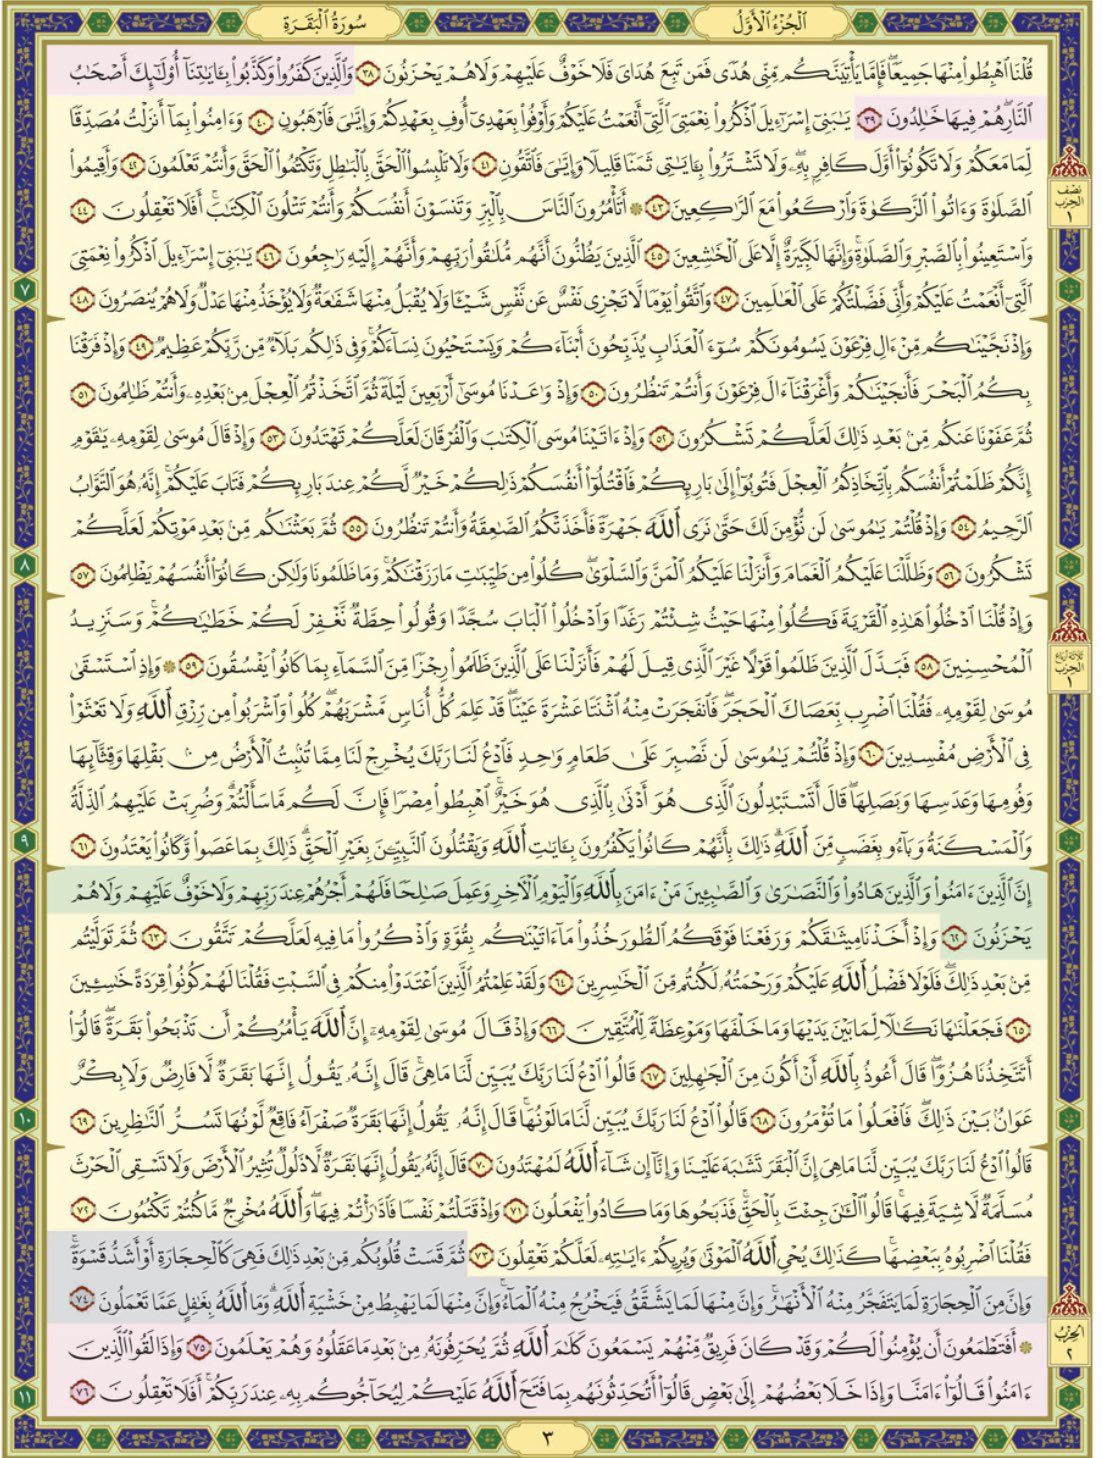 الجُزْءُ الأَوَّلُ
سُورَةُ البَقَرَةِ
قُلْنَا ٱهْبِطُوا۟ مِنْهَا جَمِيعًۭا ۖ فَإِمَّا يَأْتِيَنَّكُم مِّنِّى هُدًۭى فَمَن تَبِعَ هُدَاىَ فَلَا خَوْفٌ عَلَيْهِمْ وَلَا هُمْ يَحْزَنُونَ ٣٨ وَٱلَّذِينَ كَفَرُوا۟ وَكَذَّبُوا۟ بِـَٔايَـٰتِنَآ أُو۟لَـٰٓئِكَ أَصْحَـٰبُ
ٱلنَّارِ ۖ هُمْ فِيهَا خَـٰلِدُونَ ٣٩ يَـٰبَنِىٓ إِسْرَٰٓءِيلَ ٱذْكُرُوا۟ نِعْمَتِىَ ٱلَّتِىٓ أَنْعَمْتُ عَلَيْكُمْ وَأَوْفُوا۟ بِعَهْدِىٓ أُوفِ بِعَهْدِكُمْ وَإِيَّـٰىَ فَٱرْهَبُونِ ٤٠ وَءَامِنُوا۟ بِمَآ أَنزَلْتُ مُصَدِّقًۭا
لِّمَا مَعَكُمْ وَلَا تَكُونُوٓا۟ أَوَّلَ كَافِرٍۭ بِهِۦ ۖ وَلَا تَشْتَرُوا۟ بِـَٔايَـٰتِى ثَمَنًۭا قَلِيلًۭا وَإِيَّـٰىَ فَٱتَّقُونِ ٤١ وَلَا تَلْبِسُوا۟ ٱلْحَقَّ بِٱلْبَـٰطِلِ وَتَكْتُمُوا۟ ٱلْحَقَّ وَأَنتُمْ تَعْلَمُونَ ٤٢ وَأَقِيمُوا۟
ٱلصَّلَوٰةَ وَءَاتُوا۟ ٱلزَّكَوٰةَ وَٱرْكَعُوا۟ مَعَ ٱلرَّٰكِعِينَ ٤٣ ۞ أَتَأْمُرُونَ ٱلنَّاسَ بِٱلْبِرِّ وَتَنسَوْنَ أَنفُسَكُمْ وَأَنتُمْ تَتْلُونَ ٱلْكِتَـٰبَ ۚ أَفَلَا تَعْقِلُونَ ٤٤
نصف الحزب ١
وَٱسْتَعِينُوا۟ بِٱلصَّبْرِ وَٱلصَّلَوٰةِ ۚ وَإِنَّهَا لَكَبِيرَةٌ إِلَّا عَلَى ٱلْخَـٰشِعِينَ ٤٥ ٱلَّذِينَ يَظُنُّونَ أَنَّهُم مُّلَـٰقُوا۟ رَبِّهِمْ وَأَنَّهُمْ إِلَيْهِ رَٰجِعُونَ ٤٦ يَـٰبَنِىٓ إِسْرَٰٓءِيلَ ٱذْكُرُوا۟ نِعْمَتِىَ
ٱلَّتِىٓ أَنْعَمْتُ عَلَيْكُمْ وَأَنِّى فَضَّلْتُكُمْ عَلَى ٱلْعَـٰلَمِينَ ٤٧ وَٱتَّقُوا۟ يَوْمًۭا لَّا تَجْزِى نَفْسٌ عَن نَّفْسٍۢ شَيْـًۭٔا وَلَا يُقْبَلُ مِنْهَا شَفَـٰعَةٌۭ وَلَا يُؤْخَذُ مِنْهَا عَدْلٌۭ وَلَا هُمْ يُنصَرُونَ ٤٨
٧
وَإِذْ نَجَّيْنَـٰكُم مِّنْ ءَالِ فِرْعَوْنَ يَسُومُونَكُمْ سُوٓءَ ٱلْعَذَابِ يُذَبِّحُونَ أَبْنَآءَكُمْ وَيَسْتَحْيُونَ نِسَآءَكُمْ ۚ وَفِى ذَٰلِكُم بَلَآءٌۭ مِّن رَّبِّكُمْ عَظِيمٌۭ ٤٩ وَإِذْ فَرَقْنَا
بِكُمُ ٱلْبَحْرَ فَأَنجَيْنَـٰكُمْ وَأَغْرَقْنَآ ءَالَ فِرْعَوْنَ وَأَنتُمْ تَنظُرُونَ ٥٠ وَإِذْ وَٰعَدْنَا مُوسَىٰٓ أَرْبَعِينَ لَيْلَةًۭ ثُمَّ ٱتَّخَذْتُمُ ٱلْعِجْلَ مِنۢ بَعْدِهِۦ وَأَنتُمْ ظَـٰلِمُونَ ٥١
ثُمَّ عَفَوْنَا عَنكُم مِّنۢ بَعْدِ ذَٰلِكَ لَعَلَّكُمْ تَشْكُرُونَ ٥٢ وَإِذْ ءَاتَيْنَا مُوسَى ٱلْكِتَـٰبَ وَٱلْفُرْقَانَ لَعَلَّكُمْ تَهْتَدُونَ ٥٣ وَإِذْ قَالَ مُوسَىٰ لِقَوْمِهِۦ يَـٰقَوْمِ
إِنَّكُمْ ظَلَمْتُمْ أَنفُسَكُم بِٱتِّخَاذِكُمُ ٱلْعِجْلَ فَتُوبُوٓا۟ إِلَىٰ بَارِئِكُمْ فَٱقْتُلُوٓا۟ أَنفُسَكُمْ ذَٰلِكُمْ خَيْرٌۭ لَّكُمْ عِندَ بَارِئِكُمْ فَتَابَ عَلَيْكُمْ ۚ إِنَّهُۥ هُوَ ٱلتَّوَّابُ
ٱلرَّحِيمُ ٥٤ وَإِذْ قُلْتُمْ يَـٰمُوسَىٰ لَن نُّؤْمِنَ لَكَ حَتَّىٰ نَرَى ٱللَّهَ جَهْرَةًۭ فَأَخَذَتْكُمُ ٱلصَّـٰعِقَةُ وَأَنتُمْ تَنظُرُونَ ٥٥ ثُمَّ بَعَثْنَـٰكُم مِّنۢ بَعْدِ مَوْتِكُمْ لَعَلَّكُمْ
تَشْكُرُونَ ٥٦ وَظَلَّلْنَا عَلَيْكُمُ ٱلْغَمَامَ وَأَنزَلْنَا عَلَيْكُمُ ٱلْمَنَّ وَٱلسَّلْوَىٰ ۖ كُلُوا۟ مِن طَيِّبَـٰتِ مَا رَزَقْنَـٰكُمْ ۖ وَمَا ظَلَمُونَا وَلَـٰكِن كَانُوٓا۟ أَنفُسَهُمْ يَظْلِمُونَ ٥٧
٨
وَإِذْ قُلْنَا ٱدْخُلُوا۟ هَـٰذِهِ ٱلْقَرْيَةَ فَكُلُوا۟ مِنْهَا حَيْثُ شِئْتُمْ رَغَدًۭا وَٱدْخُلُوا۟ ٱلْبَابَ سُجَّدًۭا وَقُولُوا۟ حِطَّةٌۭ نَّغْفِرْ لَكُمْ خَطَـٰيَـٰكُمْ ۚ وَسَنَزِيدُ
ٱلْمُحْسِنِينَ ٥٨ فَبَدَّلَ ٱلَّذِينَ ظَلَمُوا۟ قَوْلًا غَيْرَ ٱلَّذِى قِيلَ لَهُمْ فَأَنزَلْنَا عَلَى ٱلَّذِينَ ظَلَمُوا۟ رِجْزًۭا مِّنَ ٱلسَّمَآءِ بِمَا كَانُوا۟ يَفْسُقُونَ ٥٩ ۞ وَإِذِ ٱسْتَسْقَىٰ
ثلاثة أرباع الحزب ١
مُوسَىٰ لِقَوْمِهِۦ فَقُلْنَا ٱضْرِب بِّعَصَاكَ ٱلْحَجَرَ ۖ فَٱنفَجَرَتْ مِنْهُ ٱثْنَتَا عَشْرَةَ عَيْنًۭا ۖ قَدْ عَلِمَ كُلُّ أُنَاسٍۢ مَّشْرَبَهُمْ ۖ كُلُوا۟ وَٱشْرَبُوا۟ مِن رِّزْقِ ٱللَّهِ وَلَا تَعْثَوْا۟
فِى ٱلْأَرْضِ مُفْسِدِينَ ٦٠ وَإِذْ قُلْتُمْ يَـٰمُوسَىٰ لَن نَّصْبِرَ عَلَىٰ طَعَامٍۢ وَٰحِدٍۢ فَٱدْعُ لَنَا رَبَّكَ يُخْرِجْ لَنَا مِمَّا تُنۢبِتُ ٱلْأَرْضُ مِنۢ بَقْلِهَا وَقِثَّآئِهَا
وَفُومِهَا وَعَدَسِهَا وَبَصَلِهَا ۖ قَالَ أَتَسْتَبْدِلُونَ ٱلَّذِى هُوَ أَدْنَىٰ بِٱلَّذِى هُوَ خَيْرٌ ۚ ٱهْبِطُوا۟ مِصْرًۭا فَإِنَّ لَكُم مَّا سَأَلْتُمْ ۗ وَضُرِبَتْ عَلَيْهِمُ ٱلذِّلَّةُ
وَٱلْمَسْكَنَةُ وَبَآءُو بِغَضَبٍۢ مِّنَ ٱللَّهِ ۗ ذَٰلِكَ بِأَنَّهُمْ كَانُوا۟ يَكْفُرُونَ بِـَٔايَـٰتِ ٱللَّهِ وَيَقْتُلُونَ ٱلنَّبِيِّـۧنَ بِغَيْرِ ٱلْحَقِّ ۗ ذَٰلِكَ بِمَا عَصَوا۟ وَّكَانُوا۟ يَعْتَدُونَ ٦١
٩
إِنَّ ٱلَّذِينَ ءَامَنُوا۟ وَٱلَّذِينَ هَادُوا۟ وَٱلنَّصَـٰرَىٰ وَٱلصَّـٰبِـِٔينَ مَنْ ءَامَنَ بِٱللَّهِ وَٱلْيَوْمِ ٱلْـَٔاخِرِ وَعَمِلَ صَـٰلِحًۭا فَلَهُمْ أَجْرُهُمْ عِندَ رَبِّهِمْ وَلَا خَوْفٌ عَلَيْهِمْ وَلَا هُمْ
يَحْزَنُونَ ٦٢ وَإِذْ أَخَذْنَا مِيثَـٰقَكُمْ وَرَفَعْنَا فَوْقَكُمُ ٱلطُّورَ خُذُوا۟ مَآ ءَاتَيْنَـٰكُم بِقُوَّةٍۢ وَٱذْكُرُوا۟ مَا فِيهِ لَعَلَّكُمْ تَتَّقُونَ ٦٣ ثُمَّ تَوَلَّيْتُم
مِّنۢ بَعْدِ ذَٰلِكَ ۖ فَلَوْلَا فَضْلُ ٱللَّهِ عَلَيْكُمْ وَرَحْمَتُهُۥ لَكُنتُم مِّنَ ٱلْخَـٰسِرِينَ ٦٤ وَلَقَدْ عَلِمْتُمُ ٱلَّذِينَ ٱعْتَدَوْا۟ مِنكُمْ فِى ٱلسَّبْتِ فَقُلْنَا لَهُمْ كُونُوا۟ قِرَدَةً خَـٰسِـِٔينَ
٦٥ فَجَعَلْنَـٰهَا نَكَـٰلًۭا لِّمَا بَيْنَ يَدَيْهَا وَمَا خَلْفَهَا وَمَوْعِظَةًۭ لِّلْمُتَّقِينَ ٦٦ وَإِذْ قَالَ مُوسَىٰ لِقَوْمِهِۦٓ إِنَّ ٱللَّهَ يَأْمُرُكُمْ أَن تَذْبَحُوا۟ بَقَرَةًۭ ۖ قَالُوٓا۟
أَتَتَّخِذُنَا هُزُوًۭا ۖ قَالَ أَعُوذُ بِٱللَّهِ أَنْ أَكُونَ مِنَ ٱلْجَـٰهِلِينَ ٦٧ قَالُوا۟ ٱدْعُ لَنَا رَبَّكَ يُبَيِّن لَّنَا مَا هِىَ ۚ قَالَ إِنَّهُۥ يَقُولُ إِنَّهَا بَقَرَةٌۭ لَّا فَارِضٌۭ وَلَا بِكْرٌ
عَوَانٌۢ بَيْنَ ذَٰلِكَ ۖ فَٱفْعَلُوا۟ مَا تُؤْمَرُونَ ٦٨ قَالُوا۟ ٱدْعُ لَنَا رَبَّكَ يُبَيِّن لَّنَا مَا لَوْنُهَا ۚ قَالَ إِنَّهُۥ يَقُولُ إِنَّهَا بَقَرَةٌۭ صَفْرَآءُ فَاقِعٌۭ لَّوْنُهَا تَسُرُّ ٱلنَّـٰظِرِينَ ٦٩
١٠
قَالُوا۟ ٱدْعُ لَنَا رَبَّكَ يُبَيِّن لَّنَا مَا هِىَ إِنَّ ٱلْبَقَرَ تَشَـٰبَهَ عَلَيْنَا وَإِنَّآ إِن شَآءَ ٱللَّهُ لَمُهْتَدُونَ ٧٠ قَالَ إِنَّهُۥ يَقُولُ إِنَّهَا بَقَرَةٌۭ لَّا ذَلُولٌۭ تُثِيرُ ٱلْأَرْضَ وَلَا تَسْقِى ٱلْحَرْثَ
مُسَلَّمَةٌۭ لَّا شِيَةَ فِيهَا ۚ قَالُوا۟ ٱلْـَٔـٰنَ جِئْتَ بِٱلْحَقِّ ۚ فَذَبَحُوهَا وَمَا كَادُوا۟ يَفْعَلُونَ ٧١ وَإِذْ قَتَلْتُمْ نَفْسًۭا فَٱدَّٰرَْٰٔتُمْ فِيهَا ۖ وَٱللَّهُ مُخْرِجٌۭ مَّا كُنتُمْ تَكْتُمُونَ ٧٢
فَقُلْنَا ٱضْرِبُوهُ بِبَعْضِهَا ۚ كَذَٰلِكَ يُحْىِ ٱللَّهُ ٱلْمَوْتَىٰ وَيُرِيكُمْ ءَايَـٰتِهِۦ لَعَلَّكُمْ تَعْقِلُونَ ٧٣ ثُمَّ قَسَتْ قُلُوبُكُم مِّنۢ بَعْدِ ذَٰلِكَ فَهِىَ كَٱلْحِجَارَةِ أَوْ أَشَدُّ قَسْوَةًۭ ۚ
وَإِنَّ مِنَ ٱلْحِجَارَةِ لَمَا يَتَفَجَّرُ مِنْهُ ٱلْأَنْهَـٰرُ ۚ وَإِنَّ مِنْهَا لَمَا يَشَّقَّقُ فَيَخْرُجُ مِنْهُ ٱلْمَآءُ ۚ وَإِنَّ مِنْهَا لَمَا يَهْبِطُ مِنْ خَشْيَةِ ٱللَّهِ ۗ وَمَا ٱللَّهُ بِغَـٰفِلٍ عَمَّا تَعْمَلُونَ ٧٤
الحزب ٢
۞ أَفَتَطْمَعُونَ أَن يُؤْمِنُوا۟ لَكُمْ وَقَدْ كَانَ فَرِيقٌۭ مِّنْهُمْ يَسْمَعُونَ كَلَـٰمَ ٱللَّهِ ثُمَّ يُحَرِّفُونَهُۥ مِنۢ بَعْدِ مَا عَقَلُوهُ وَهُمْ يَعْلَمُونَ ٧٥ وَإِذَا لَقُوا۟ ٱلَّذِينَ
ءَامَنُوا۟ قَالُوٓا۟ ءَامَنَّا وَإِذَا خَلَا بَعْضُهُمْ إِلَىٰ بَعْضٍۢ قَالُوٓا۟ أَتُحَدِّثُونَهُم بِمَا فَتَحَ ٱللَّهُ عَلَيْكُمْ لِيُحَآجُّوكُم بِهِۦ عِندَ رَبِّكُمْ ۚ أَفَلَا تَعْقِلُونَ ٧٦
١١
٣